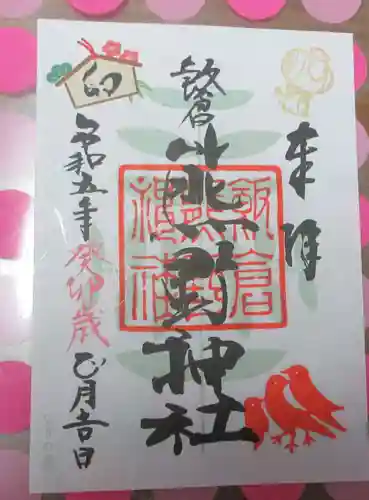 奉拝
飯倉
熊野神社
飯倉
熊野
神社
卯
令和五年癸卯歳正月吉日